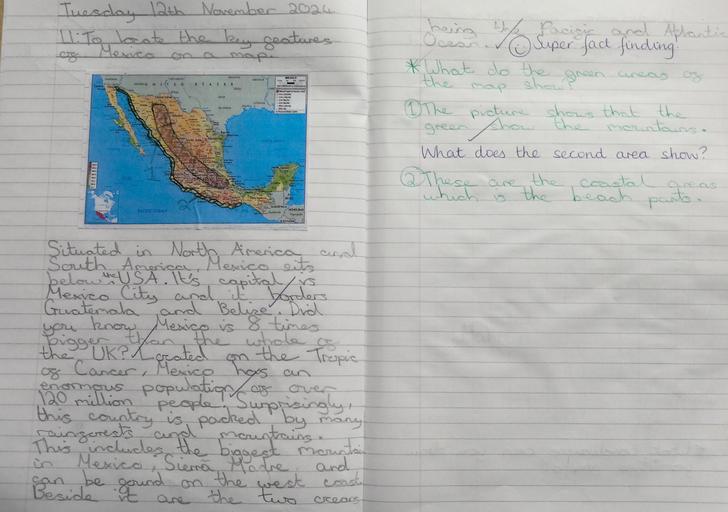 Tuesday 12th November 2024
LI: To locate the key features
of Mexico on a map.
1
2
Situated in North America and
South America, Mexico sits
below the USA. It's capital is
Mexico City and it borders
Guatemala and Belize. Did
you know, Mexico is 8 times
bigger than the whole of
the UK? Located on the Tropic
of Cancer, Mexico has an
enormous population of over
120 million people! Surprisingly,
this country is packed by many
rainforests and mountains.
This includes the biggest mountain
in Mexico, Sierra Madre, and
can be found on the west coast.
Beside it are the two oceans
being the Pacific and Atlantic
Ocean. Super fact finding!
*What do the green areas of
the map show?
① The picture shows that the
green show the mountains.
What does the second area show?
② These are the coastal areas
which is the beach parts.